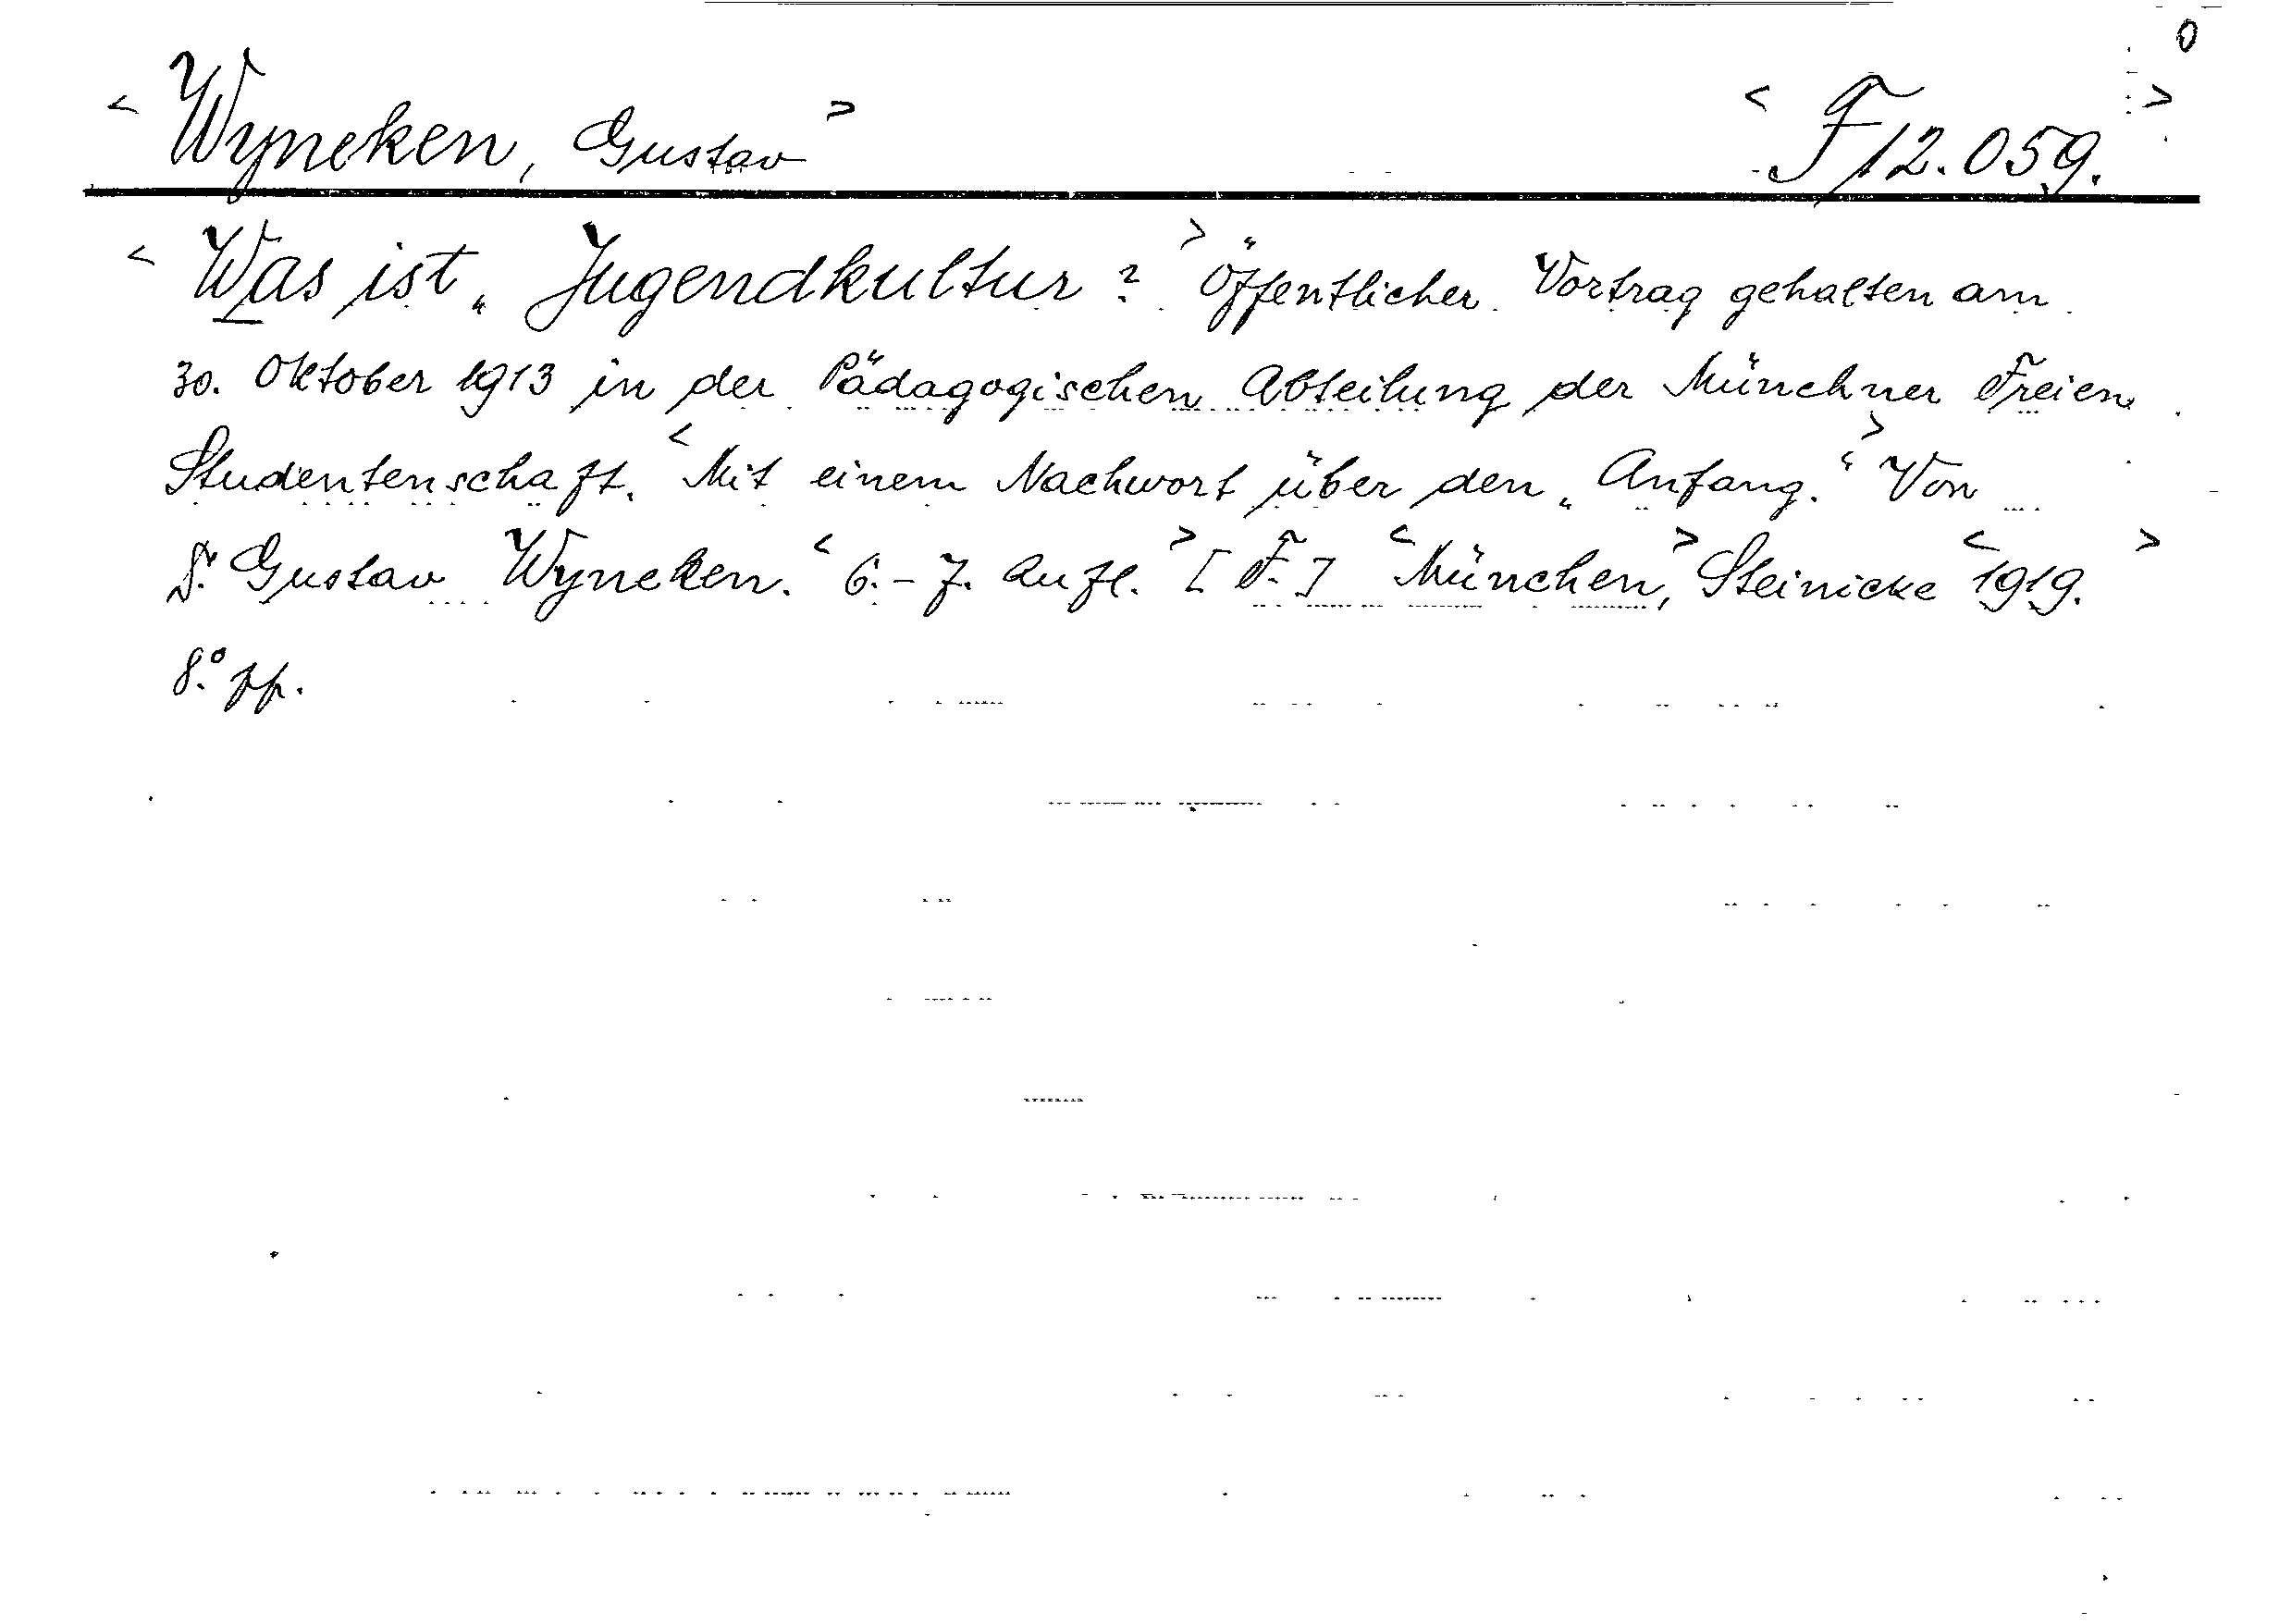 0
< Wyneken, Gustav > < F 12.059. >
< Was ist „Jugendkultur?“ > Öffentlicher Vortrag gehalten am
30. Oktober 1913 in der Pädagogischen Abteilung der Münchner Freien
Studentenschaft. < Mit einem Nachwort über den „Anfang.“ > Von
Dr. Gustav Wyneken. < 6.-7. Aufl. > [F.] < München, > Steinicke < 1919. >
8.° pp.